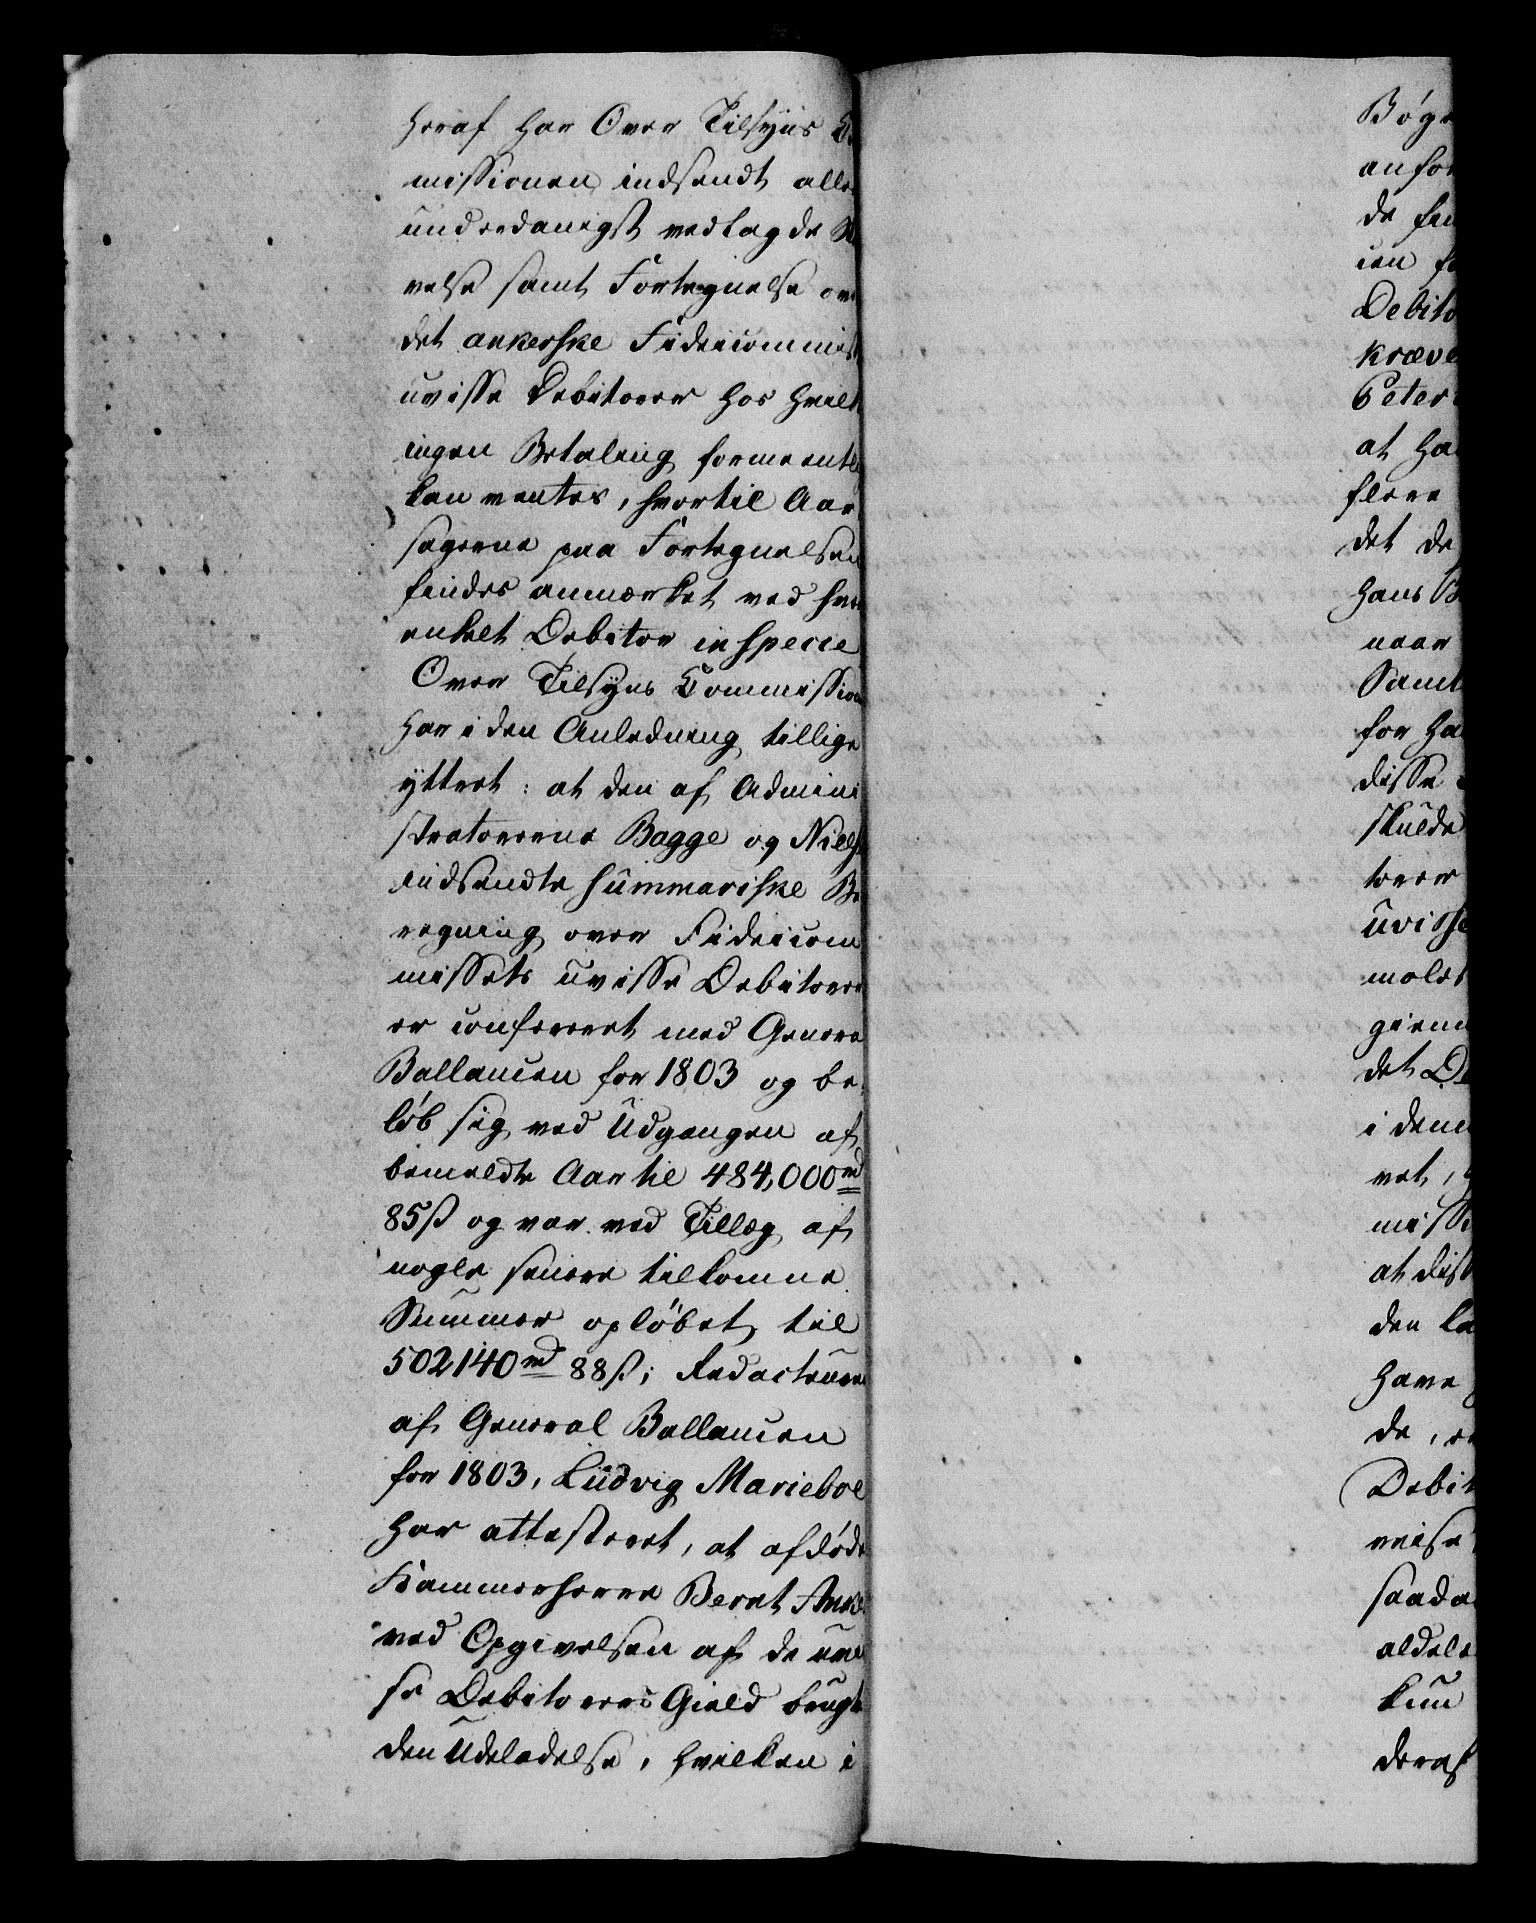 heraf har Over Tilsyns
missionen indsendt aller
underdanigst vedlagde
velse samt Fortegnelse ov
det ankerske Fideicommis
uvisse Debitorer hos hvilk
ingen Betaling formeentl
kan ventes, hvortil Aar
sagerne paa Fortegnelsen
findes anmærket ved hve
enkelt Debitor in specie
Over Tilsyns Commission
har i den Anledning tillige
yttret: at den af Admini
stratorerne Bagge og Niels
indsendte summariske Be
regning over Fideicom
missets uvisse Debitorer
er confereret med Genera
Ballancen for 1803 og be-
løb sig ved Udgangen af
bemeldte Aar til 484,000 rd
85 ß og var ved Tillæg af
nogle senere tilkomne
Summer opløbet til
502140 rd 88 ß; Redacteuren
af General Ballancen
for 1803, Ludvig Marieboe
har attesteret, at afdøde
Kammerherre Bernt Anke
ved Opgivelsen af de uvi
se Debitorers Gield brugte
den Udeladelse, hvilken i
Bøge
anfør
de fin
cen fo
Debito
kræve
Peter
at ha
flere
det de
hans
naar
Samt
for ha
disse
skulde
torer
uvisse
moles
gienn
det De
i denn
ret,
misse
at dis
den ka
have
de,
Debit
veise
saada
aldele
kun
deraf